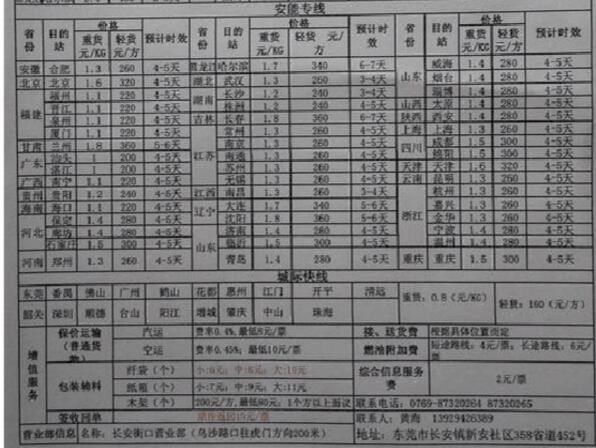 安能专线
省份 目的站 价格 预计时效 省份 目的站 价格 预计时效 省份 目的站 价格 预计时效
重货元/KG 轻货元/方 重货元/KG 轻货 元/方 重货元/KG 轻货元/方
安徽 合肥 1.3 260 4-5天 黑龙江 哈尔滨 1.7 340 6-7天 山东 威海 1.4 280 4-5天
北京 北京 1.6 320 4-5天 湖北 武汉 1.3 260 3-4天 烟台 1.4 280 4-5天
福建 福州 1.1 220 4-5天 湖南 长沙 1.2 240 3-4天 淄博 1.4 280 4-5天
晋江 1.1 220 4-5天 株洲 1.2 240 4-5天 山西 太原 1.4 280 4-5天
泉州 1.1 220 4-5天 吉林 长春 1.8 360 6-7天 陕西 西安 1.4 280 4-5天
厦门 1.1 220 4-5天 江苏 常州 1.3 260 4-5天 上海 上海 1.3 260 4-5天
甘肃 兰州 1.8 360 5-6天 南京 1.3 260 4-5天 四川 成都 1.5 300 4-5天
广东 汕头 1 200 4-5天 南通 1.3 260 4-5天 绵阳 1.5 300 4-5天
湛江 1 200 4-5天 苏州 1.3 260 4-5天 天津 天津 1.6 320 4-5天
广西 南宁 1.1 220 4-5天 无锡 1.3 260 4-5天 云南 昆明 1.3 260 4-5天
贵州 贵阳 1.2 240 4-5天 江西 南昌 1.3 260 3-4天 浙江 杭州 1.3 260 4-5天
海南 海口 1.1 220 4-5天 辽宁 大连 1.7 340 5-6天 嘉兴 1.3 260 4-5天
河北 保定 1.4 280 4-5天 沈阳 1.8 360 5-6天 金华 1.3 260 4-5天
廊坊 1.4 280 4-5天 山东 济南 1.4 280 4-5天 宁波 1.4 280 4-5天
石家庄 1.5 300 4-5天 临沂 1.5 300 4-5天 温州 1.4 280 4-5天
河南 郑州 1.3 260 4-5天 青岛 1.4 280 4-5天 重庆 重庆 1.5 300 4-5天
城际快线
东莞 番禺 佛山 广州 鹤山 花都 惠州 江门 开平 清远 重货：0.8（元/KG） 轻货：160（元/方）
韶关 深圳 顺德 台山 阳江 增城 肇庆 中山 珠海
增值服务 保价运输（普通货物） 汽运 费率0.4%,最低8元/票 接、送货费 根据具体位置而定
空运 费率0.45%,最低10元/票 燃油附加费 短途路线：4元/票；长途路线：6元/票
包装辅料 纤袋（个） 小:6元；中:8元；大:10元 综合信息服务费 2元/票
纸箱（个） 小:7元；中:9元；大:11元
木架（个） 200元/方,最低80元；1个方以上面议 联系电话：0769-87320264 87320265
签收回单 原件返回15元/票 联系人：黄海 13929426389
营业部信息 名称：长安街口营业部（乌沙路口往虎门方向200米） 地址：东莞市长安镇新安社区358省道452号